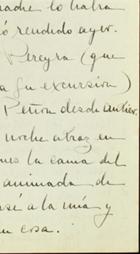 madre lo había
ó rendido ayer.
Pereyra (que
a su excursión)
Peñón desde antier.
noche atroz en
nes la cama del
animada de
sé a la una y
cosa.